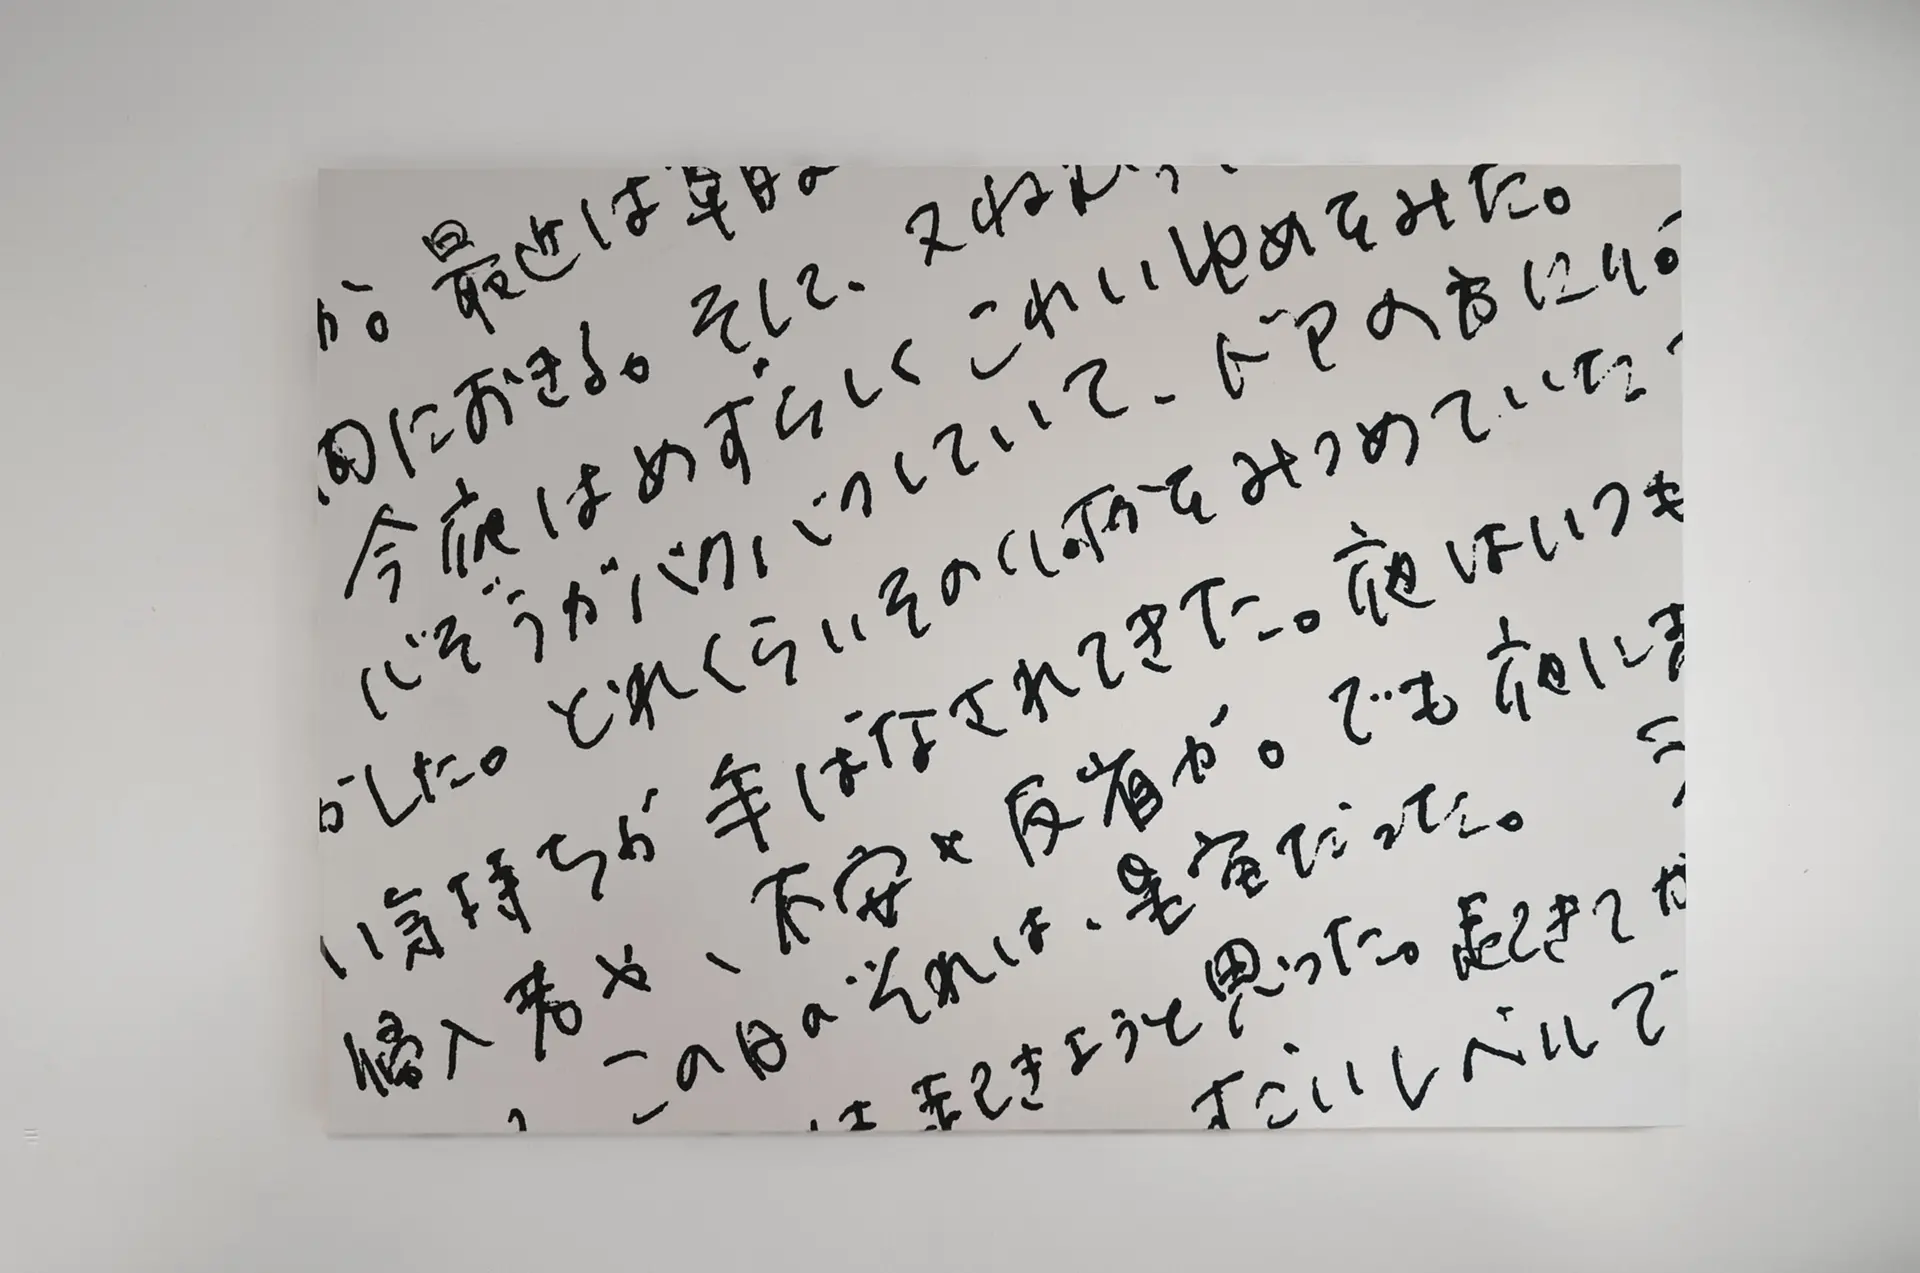 か。最近は
間におきる。そして、又ねむって
今夜はめずらしくこわいゆめをみた。
心ぞうがバクバクしていて、ドアの方に
がした。どれくらいその 何かをみつめていた
い気持ちが手ばなされてきた。夜はいつも
侵入者や、不安や反省か。でも夜に
この日のそれは、 だった。
は起きようと思った。起きてか
すごいレベルで